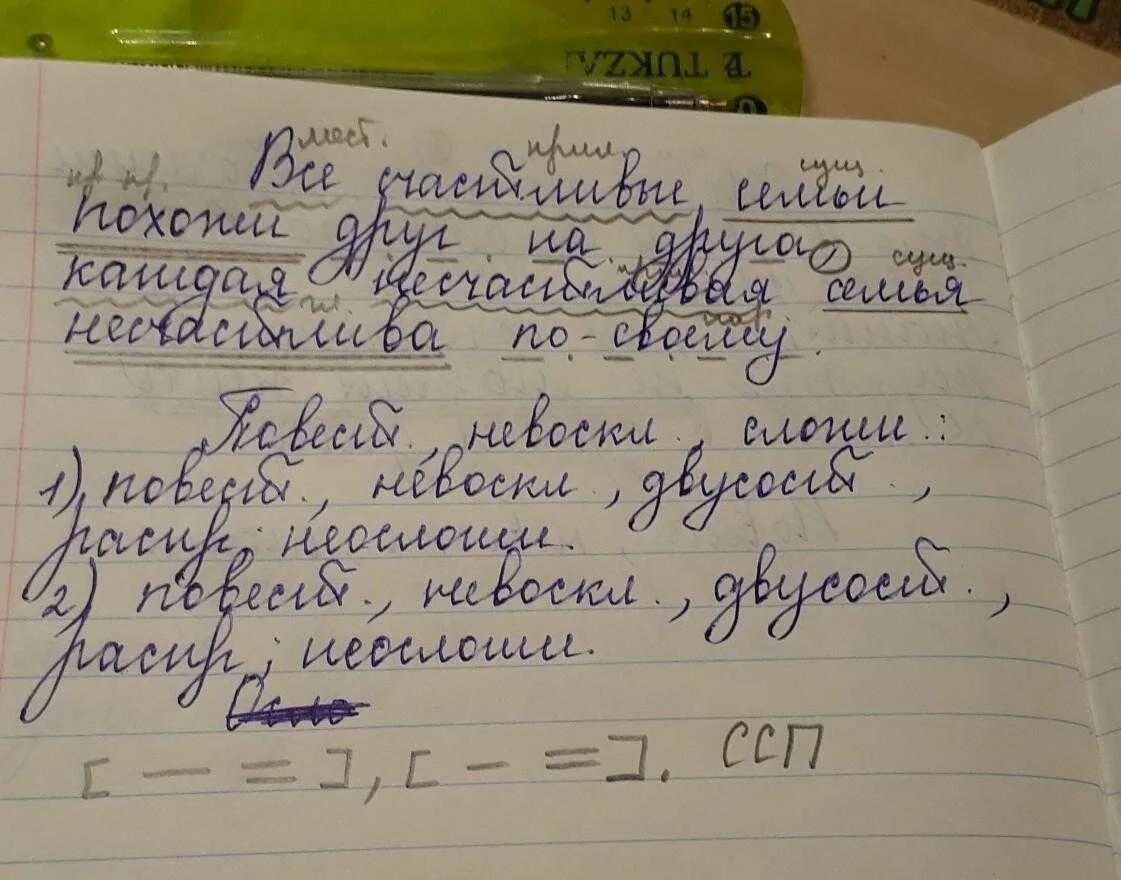 13 14 15
TUKZA
мест. прил. сущ.
Все счастливые семьи
кр. пр.
похожи друг на друга,
сущ.
каждая несчастливая семья
гл. нар.
несчастлива по-своему.
Повест., невоскл., сложн.:
1) повест., невоскл., двусост.,
распр., неосложн.
2) повест., невоскл., двусост.,
распр., неосложн.
[ — = ], [ - = ]. ССП